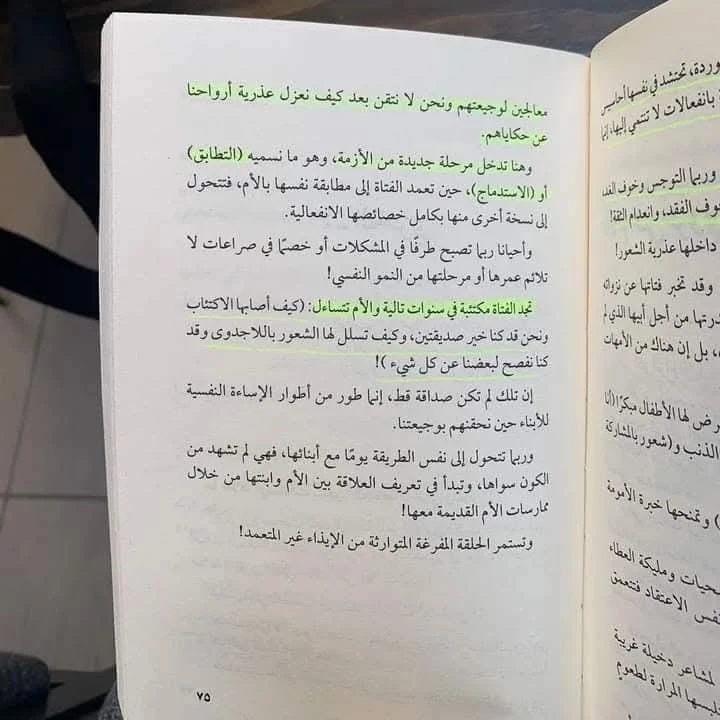 وردة، تحتشد في نفسها أحاسيس
بانفعالات لا تنتمي إليها، إنها
وربما التوجس وخوف الفقد
خوف الفقد، وانعدام الثقة!
داخلها عذرية الشعور!
وقد تخبر فتاتها عن نزواته
من أجل أبيها الذي لم
، بل إن هناك من الأمهات
ض لها الأطفال مبكرًا (أنا
الذنب و(شعور بالمشاركة
) وتمنحها خبرة الأمومة
ومليكة العطاء
نفس الاعتقاد فتتعمق
لمشاعر دخيلة غريبة
المرارة لطعوم
معالجين لوجيعتهم ونحن لا نتقن بعد كيف نعزل عذرية أرواحنا
عن حكاياهم.
وهنا تدخل مرحلة جديدة من الأزمة، وهو ما نسميه (التطابق)
أو (الاستدماج)، حين تعمد الفتاة إلى مطابقة نفسها بالأم، فتتحول
إلى نسخة أخرى منها بكامل خصائصها الانفعالية.
وأحيانا ربما تصبح طرفًا في المشكلات أو خصمًا في صراعات لا
تلائم عمرها أو مرحلتها من النمو النفسي!
تجد الفتاة مكتئبة في سنوات تالية والأم تتساءل: (كيف أصابها الاكتئاب
ونحن قد كنا خير صديقتين، وكيف تسلل لها الشعور باللاجدوى وقد
كنا نفصح لبعضنا عن كل شيء )!
إن تلك لم تكن صداقة قط، إنما طور من أطوار الإساءة النفسية
للأبناء حين نحقنهم بوجيعتنا.
وربما تتحول إلى نفس الطريقة يومًا مع أبنائها، فهي لم تشهد من
الكون سواها، وتبدأ في تعريف العلاقة بين الأم وابنتها من خلال
ممارسات الأم القديمة معها!
وتستمر الحلقة المفرغة المتوارثة من الإيذاء غير المتعمد!
٧٥